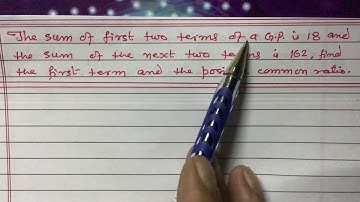 The sum of first two terms of a G.P. is 18 and
the sum of the next two terms is 162, find
the first term and the positive common ratio.